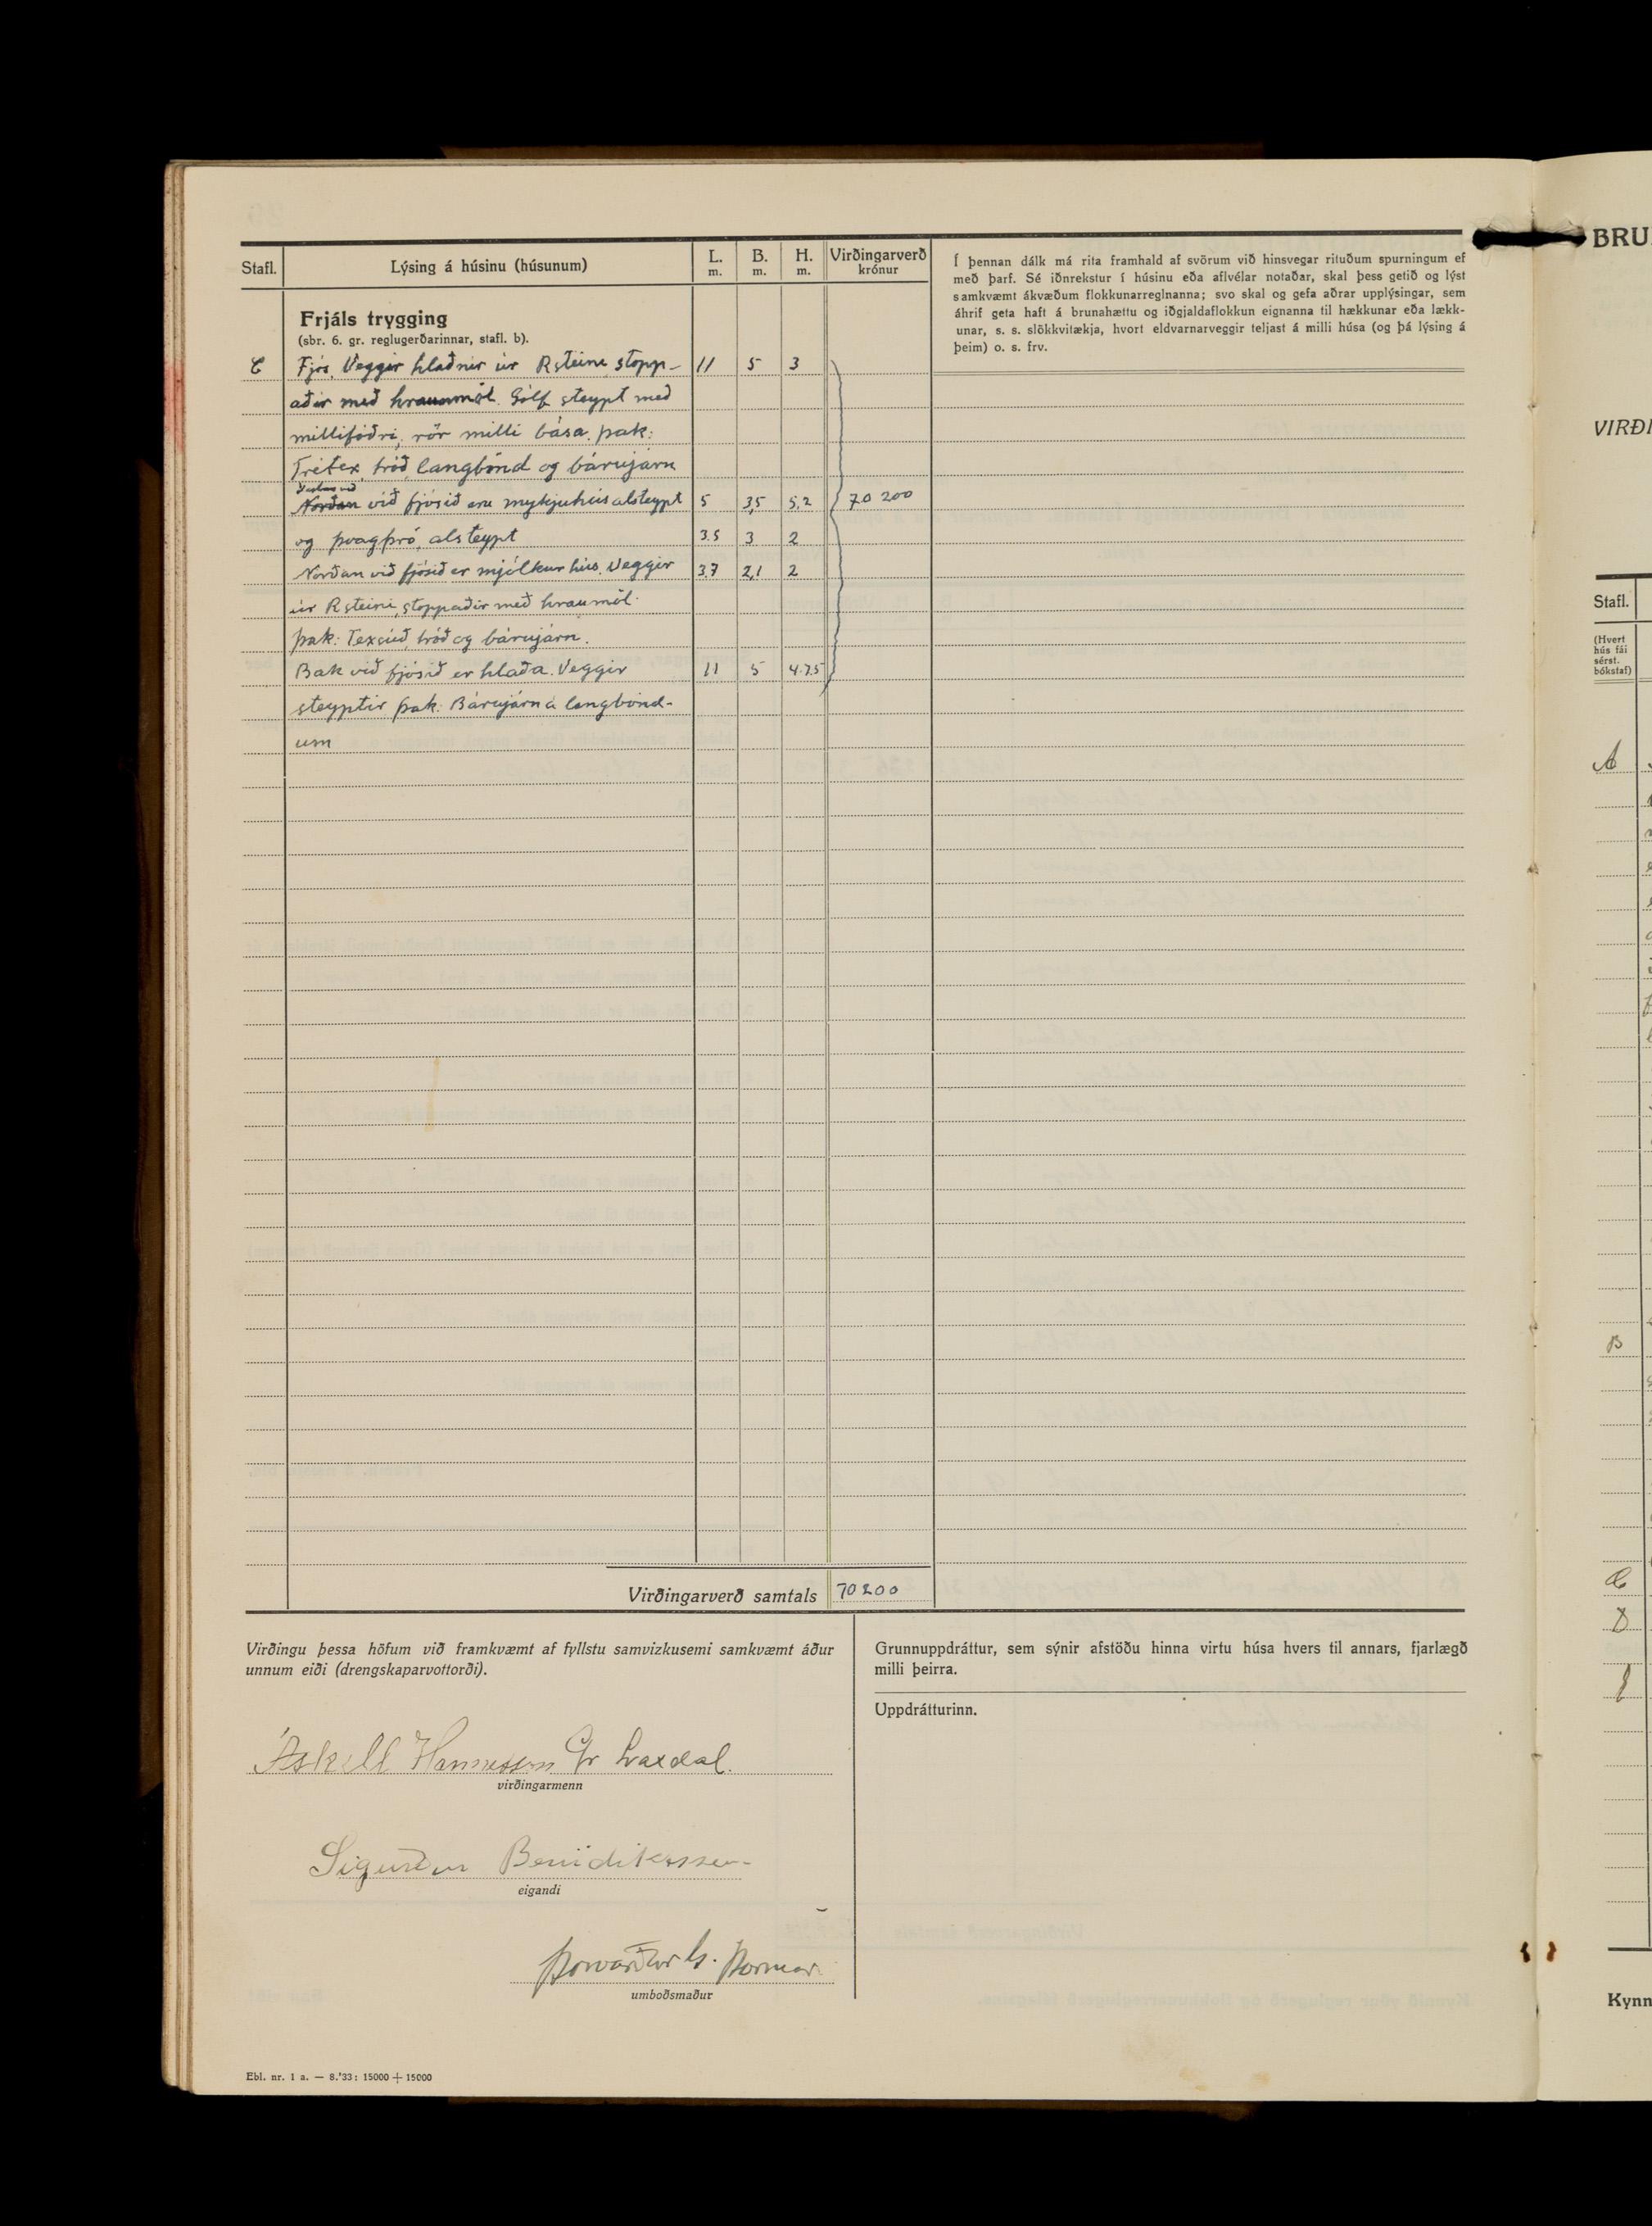 Stafl.
Lýsing á húsinu (húsunum)
L. m.
B. m.
H. m.
Virðingarverð krónur
Í þennan dálk má rita framhald af svörum við hinsvegar rituðum spurningum ef
með þarf. Sé iðnrekstur í húsinu eða aflvélar notaðar, skal þess getið og lýst
samkvæmt ákvæðum flokkunarreglnanna; svo skal og gefa aðrar upplýsingar, sem
áhrif geta haft á brunahættu og iðgjaldaflokkun eignanna til hækkunar eða lækk-
unar, s. s. slökkvitækja, hvort eldvarnarveggir teljast á milli húsa (og þá lýsing á
þeim) o. s. frv.
Frjáls trygging
(sbr. 6. gr. reglugerðarinnar, stafl. b).
C Fjós, Veggir hlaðnir úr Rsteini stopp- 11 5 3
aðir með hraunmöl. Gólf steypt með
millifóðri, rör milli bása. þak:
Tretex, tróð langbönd og bárujárn
Norðan við fjósið eru mykjuhús alsteypt 5 3,5 5,2 70 200
og þvagþró, alsteypt 3.5 3 2
Norðan við fjósið er mjólkurhús. Veggir 3,7 2,1 2
úr Rsteini, stoppaðir með hraunmöl.
þak: Texsúð, tróð og bárujárn.
Bak við fjósið er hlaða. Veggir 11 5 4.75
steyptir þak: Bárujárn á langbönd-
um
Virðingarverð samtals 70200
Virðingu þessa höfum við framkvæmt af fyllstu samvizkusemi samkvæmt áður
unnum eiði (drengskaparvottorði).
Áskell Hannesson Gr Laxdal.
virðingarmenn
Sigurður Benidiktsson
eigandi
Þorvarður G. Þormar
umboðsmaður
Grunnuppdráttur, sem sýnir afstöðu hinna virtu húsa hvers til annars, fjarlægð
milli þeirra.
Uppdrátturinn.
Ebl. nr. 1 a. — 8.'33: 15000 + 15000
BRU
VIRÐI
Stafl.
(Hvert
hús fái
sérst.
bókstaf)
A
B
C
D
Kynn